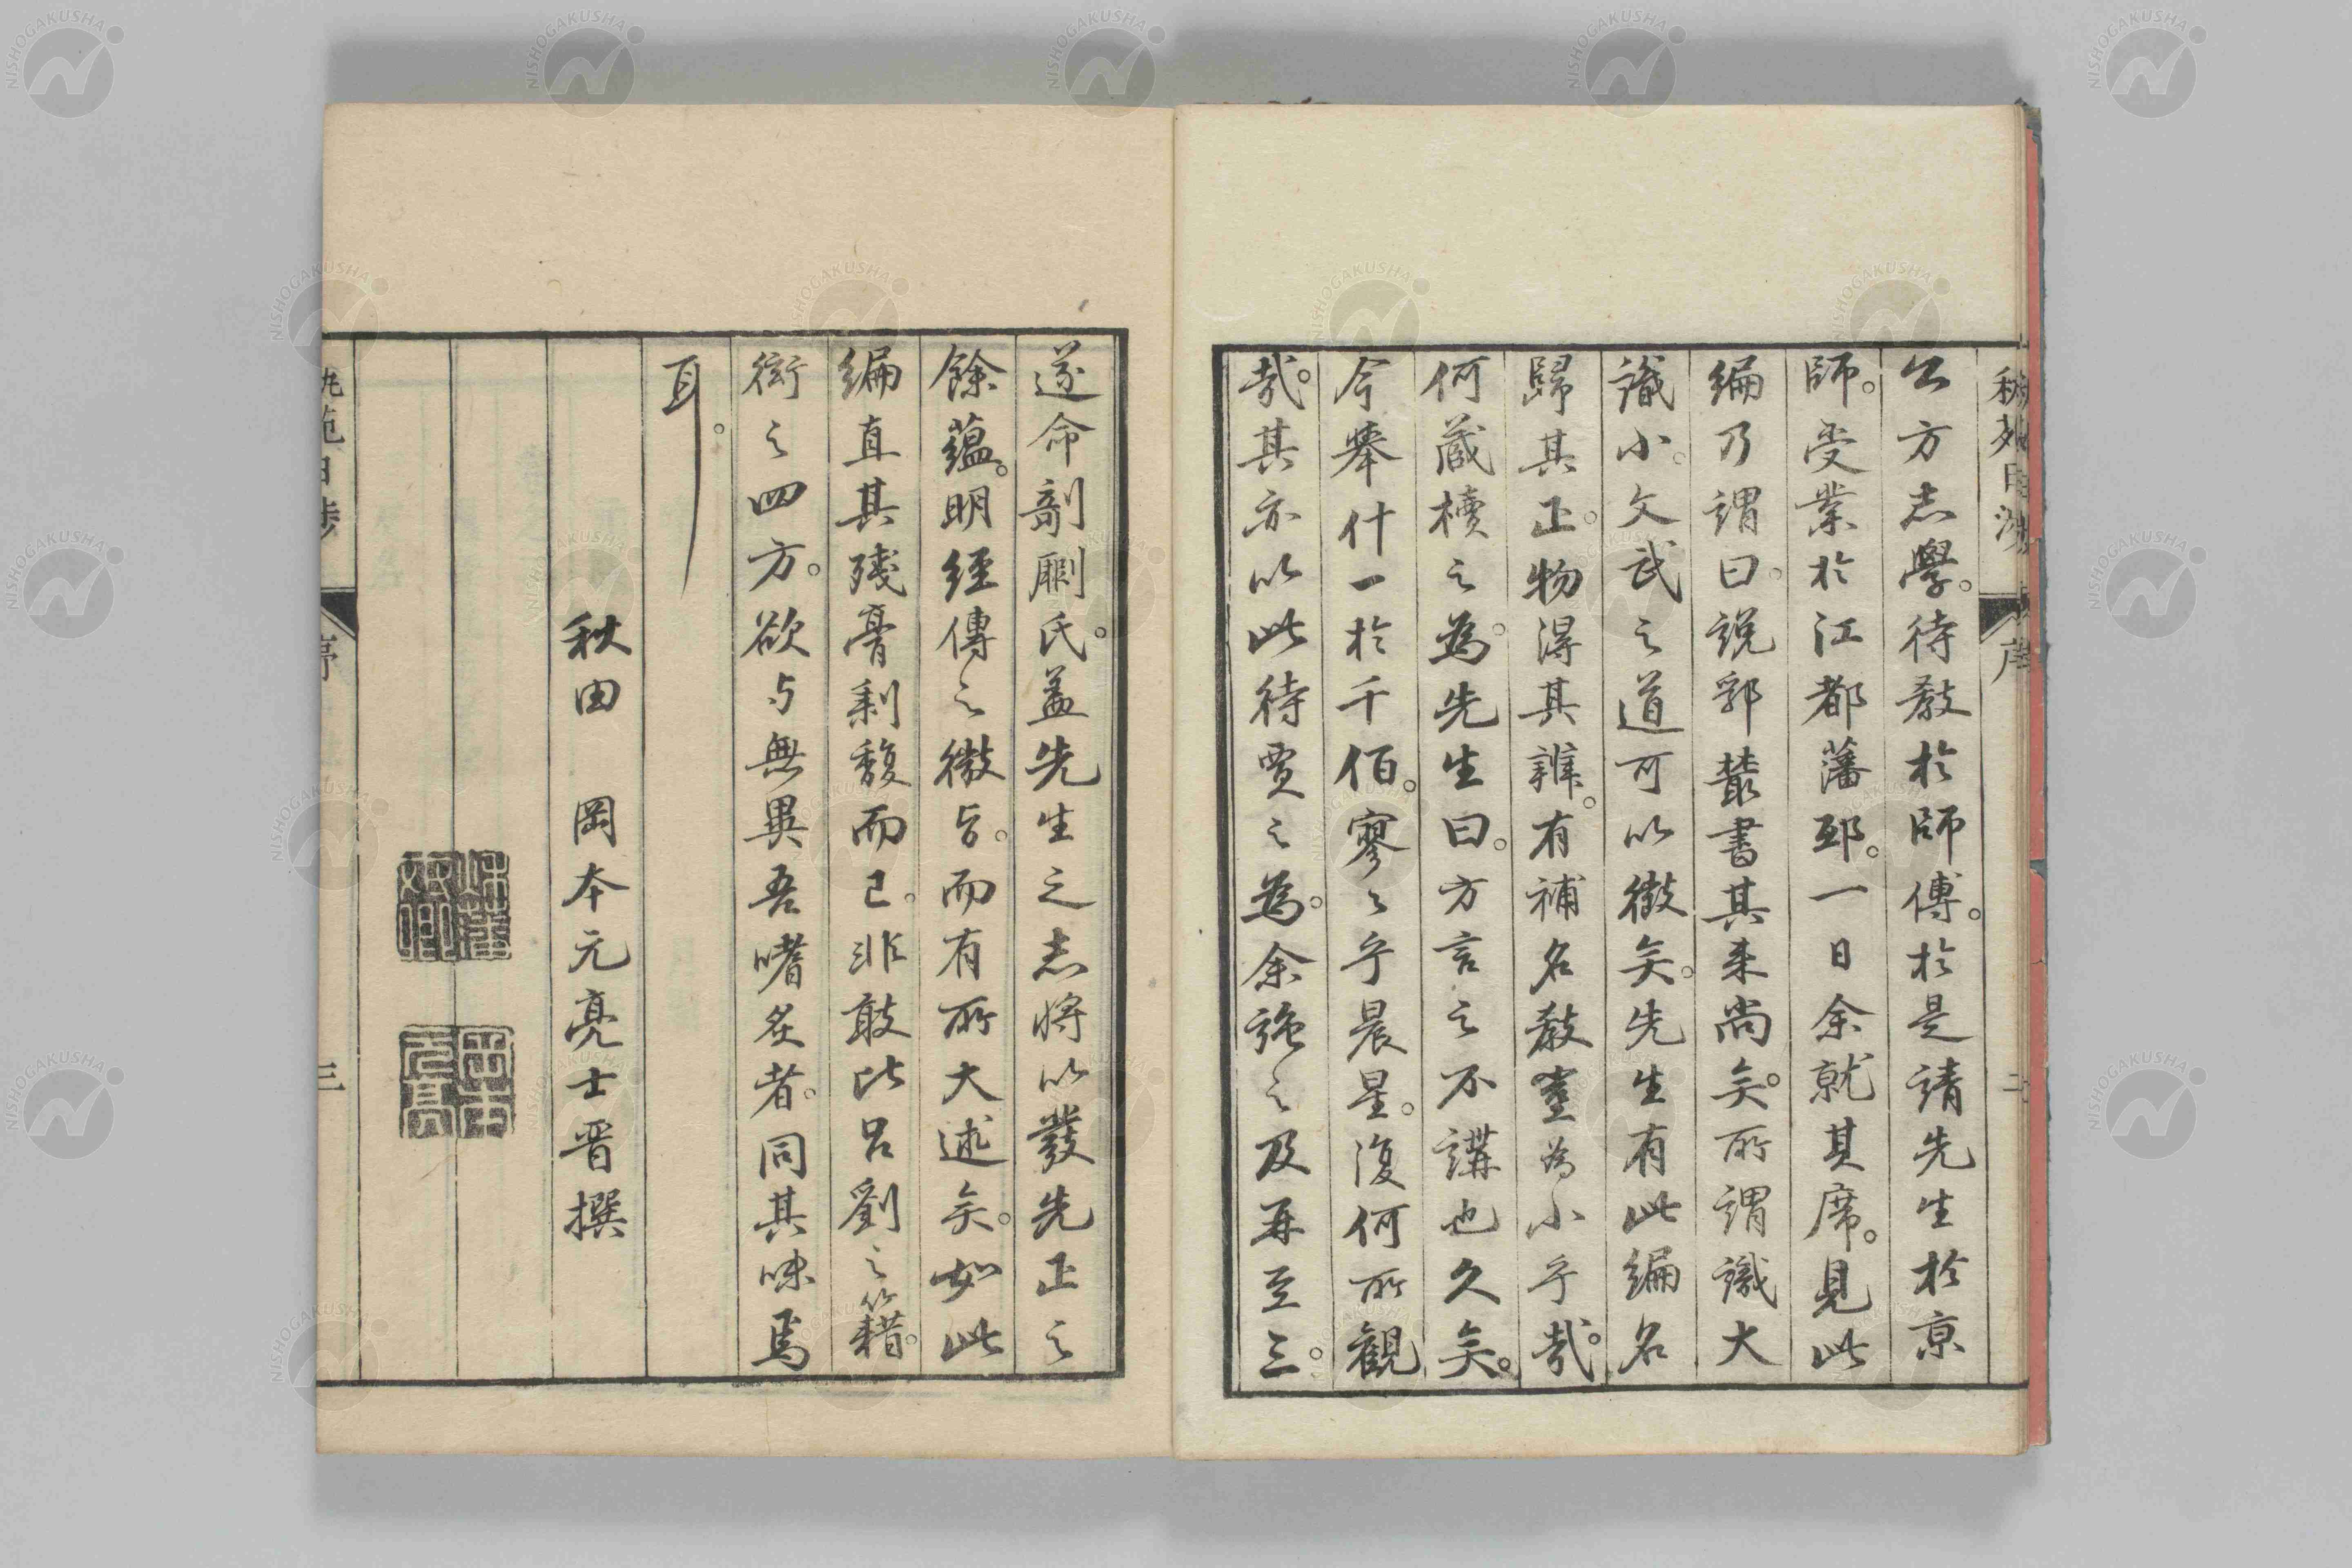 公方志學。待教於師傅。於是請先生於京
師。受業於江都藩邸。一日余就其席。見此
編乃謂曰。說郛叢書其来尚矣。所謂識大
識小。文武之道可以徴矣。先生有此編名
歸其正。物得其辨。有補名教豈為小乎哉。
何蔵櫝之為。先生曰。方言之不講也久矣。
今舉什一於千佰。寥〻乎晨星。復何所觀
哉。其亦以此待賈之為。余強之及再至三。
遂命剞劂氏。蓋先生之志将以發先正之
餘蘊。明經傳之徴与。而有所大述矣。如此
編直其残膏剰馥而已。非敢比呂劉之籍。
衒之四方。欲与無異吾嗜炙者。同其味焉
耳。
秋田 岡本元亮士晋撰
序
三
二